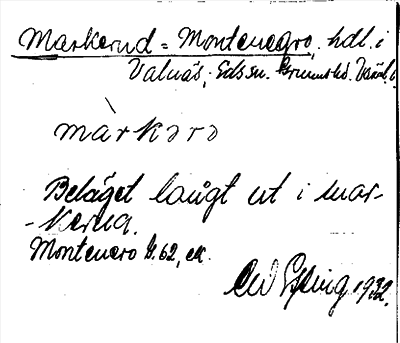 Markerud = Montenegro, hdl. i
Valnäs, Eds sn. Grums hd. Värml.
màrkərə
Beläget långt ut i mar-
-kerna.
Montenero G. 62, ek.
1932.